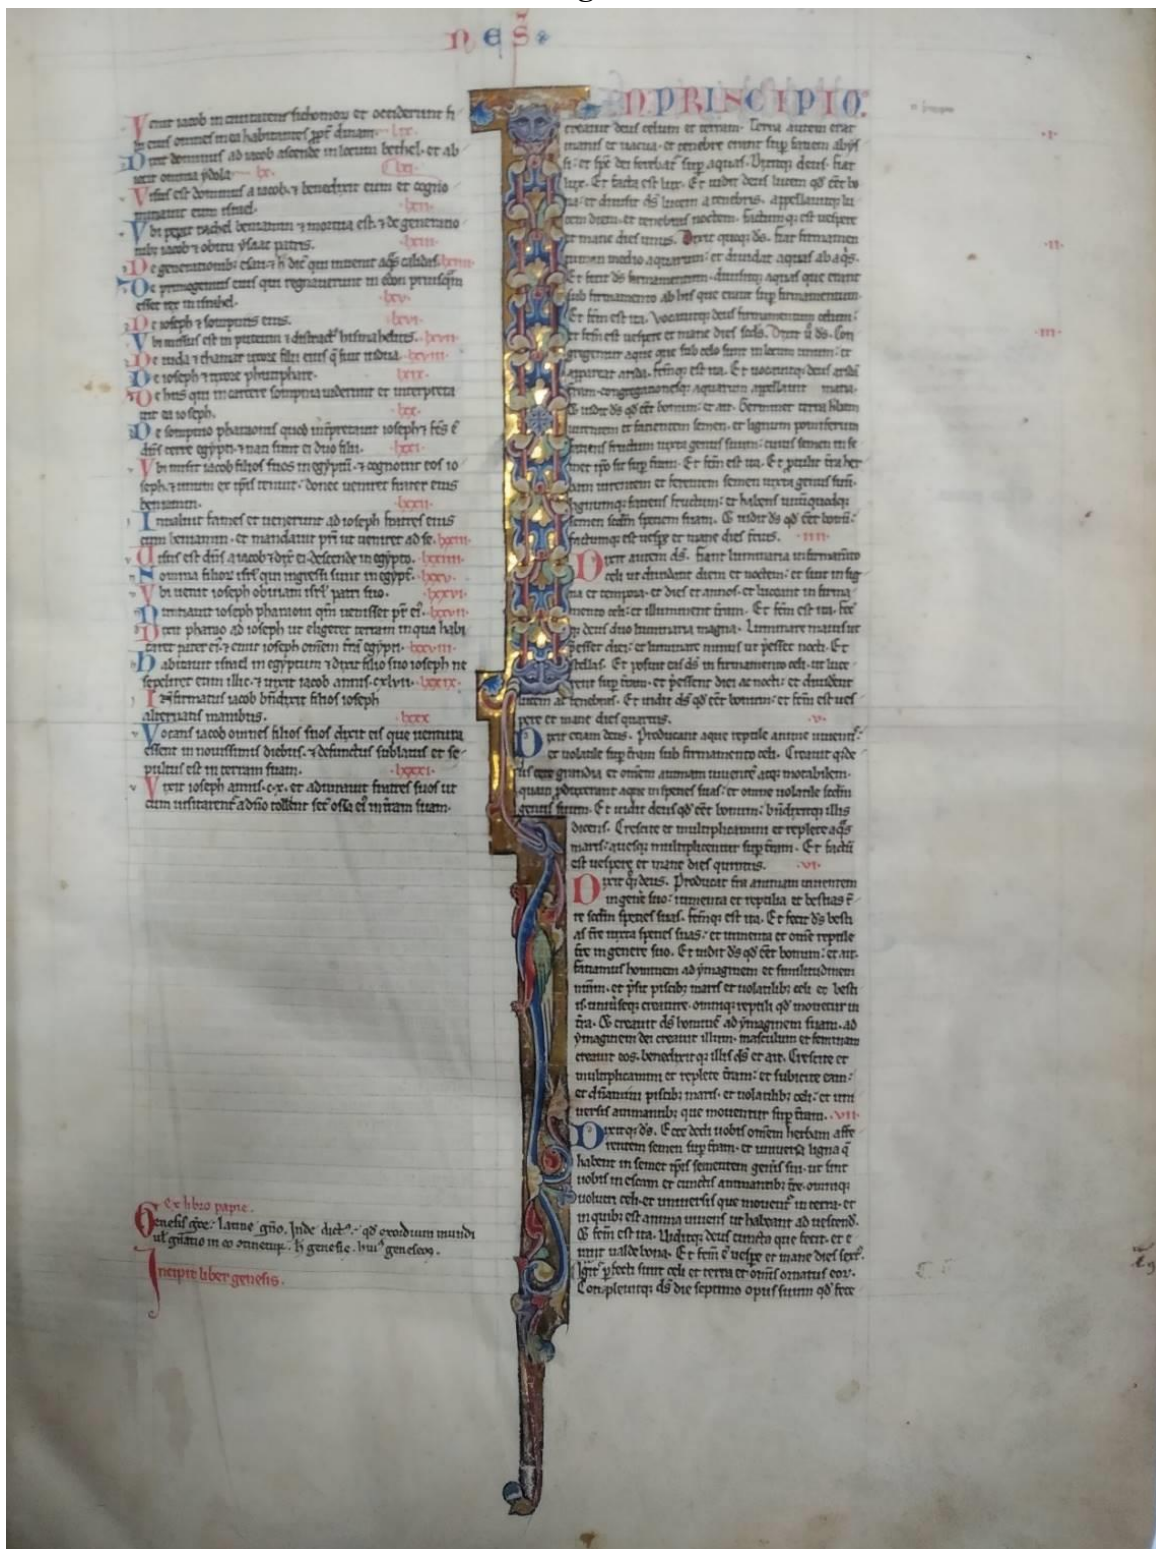 NES
Venit iacob in ciuitatem sichimorum et occiderunt fi
lii eius omnes in ea habitantes ꝓpt̄ dinam. lix.
Dixit dominus ad iacob ascende in locum bethel. et ab
iecit omnia ydola. lx. lxi.
Visus est dominus a iacob. ⁊ benedixit eum et cogno
minauit eum israel. lxii.
Vbi peperit rachel beniamin ⁊ mortua est. ⁊ de generatio
nibꝫ iacob ⁊ obitu ysaac patris. lxiii.
De generationibꝫ esau. ⁊ h̄ dic̄ qui inuenit aq̄s calidas. lxiiii
De primogenitis eius qui regnauerunt in edom priusq̄m
esset rex in israhel. lxv.
De ioseph ⁊ sompniis eius. lxvi.
Vbi missus est in puteum ⁊ distract᾽ hismahelitis. lxvii
De iuda ⁊ thamar uxore filii eius lxviii.
De ioseph ⁊ uxore phutiphare. lxix.
De hiis qui in carcere sompnia uiderunt et interpreta
tus est ea ioseph. lxx.
De sompnio pharaonis quod inp̄retatur ioseph ⁊ fc̄s ē
dn̄s terre egypti. ⁊ nati sunt ei duo filii. lxxi.
Vbi misit iacob filios suos in egyptū. ⁊ cognouit eos io
seph. ⁊ unum ex ip̄is tenuit. donec ueniret frater eius
beniamin. lxxii.
Inualuit fames et uenerunt ad ioseph fratres eius
cum beniamin. et mandauit pr̄i ut ueniret ad se. lxxiii
Visus est dn̄s a iacob ⁊ dix̄ ei. descende in egypto. lxxiiii
Nomina filiorꝫ isrl̄ qui ingressi sunt in egypt̄. lxxv.
Vbi uenit ioseph obuiam isrl̄ patri suo. lxxvi.
Nuntiauit ioseph pharaoni qm̄ uenisset pr̄ ei᾽. lxxvii
Dixit pharao ad ioseph ut eligeret terram in qua habi
taret pater ei᾽. ⁊ emit ioseph omēm trā̄ egypti. lxxviii.
Habitauit israel in egyptum ⁊ dixit filio suo ioseph ne
sepeliret eum illic. ⁊ uixit iacob annis. cxlvii. lxxix.
Infirmatus iacob bn̄dixit filios ioseph
alternatis manibus. lxxx
Vocans iacob omnes filios suos dixit eis que uentura
essent in nouissimis diebus. ⁊ defunctus sublatus et se
pultus est in terram suam. lxxxi.
Vixit ioseph annis. c.x. et adiurauit fratres suos ut
cum uisitarent᾽ a dn̄o tollerent sec̄ ossa ei᾽ in tr̄am suam.
ex libro papie.
Genesis grec̄. latine gn̄o. Inde dict᾽. qd̄ exordium mundi
Incipit liber genesis.
IN PRINCIPIO
creauit deus celum et terram. Terra autem erat
inanis et uacua. et tenebre erant suꝑ faciem abyssi
si. et sp̄c dei ferebat᾽ suꝑ aquas. Dixitqꝫ deus. fiat
lux. Et facta est lux. Et uidit deus lucem qd̄ eēt bo
na. et diuisit ds̄ lucem a tenebris. appellauitqꝫ lu
cem diem. et tenebras noctem. factumqꝫ est uespere
et mane dies unus. Dixit quoqꝫ ds̄. fiat firmamen
tum in medio aquarum. et diuidat aquas ab aq̄s.
Et fecit ds̄ firmamentum. diuisitqꝫ aquas que erant
sub firmamento ab his que erant suꝑ firmamentum.
Et fc̄m est ita. Vocauitqꝫ deus firmamentum celum.
et fc̄m est uespere et mane dies sc̄ds. Dixit u̅ ds̄. Con
gregentur aque que sub celo sunt in locum unum. et
appareat arida. fc̄mqꝫ est ita. Et uocauitqꝫ deus aridā
terram. congregationesqꝫ aquarum appellauit maria.
Et uidit ds̄ qd̄ eēt bonum. et ait. Germinet terra herbam
uirentem et facientem semen. et lignum pomiferum
faciens fructum iuxta genus suum. cuius semen in se
met ip̄o sit suꝑ tr̄am. Et fc̄m est ita. Et ꝓtulit tr̄a her
bam uirentem et ferentem semen iuxta genus suū.
lignumqꝫ faciens fructum. et habens unūquodqꝫ
semen sc̄dm speciem suam. Et uidit ds̄ qd̄ eēt bonū.
factumqꝫ est uesꝑe et mane dies tercius. iiii
Dixit autem ds̄. fiant luminaria in firmam̄to
celi ut diuidant diem et noctem. et sint in sig
na et tempora. et dies et annos. et luceant in firma
mento celi. et illuminent tr̄am. Et fc̄m est ita. fecit
qꝫ deus duo luminaria magna. Luminare maius ut
p̄esset diei. et luminare minus ut p̄esset nocti. Et
stellas. Et posuit eas ds̄ in firmamento celi. ut luce
rent suꝑ tr̄am. et p̄essent diei ac nocti. et diuiderent
lucem ac tenebras. Et uidit ds̄ qd̄ eēt bonum. et fc̄m est ues
pere et mane dies quartus. v.
Dixit etiam deus. Producant aque reptile anime uiuentis
et uolatile suꝑ tr̄am sub firmamento celi. Creauit qꝫ de
us cete grandia et omēm animam uiuentē atqꝫ motabilem.
quam ꝓduxerant aque in species suas. et omne uolatile sc̄dm
genus suum. Et uidit deus qd̄ eēt bonum. bn̄dixitqꝫ illis
dicens. Crescite et multiplicamini et replete aq̄s
maris. auesqꝫ multiplicentur suꝑ tr̄am. Et factū
est uespere et mane dies quintus. vi.
Dixit q̄ deus. Producat tr̄a animam uiuentem
in genē suo. iumenta et reptilia et bestias t̄
re sc̄dm species suas. fc̄mqꝫ est ita. Et fecit ds̄ besti
as tr̄e iuxta species suas. et iumenta et omē reptile
tr̄e in genere suo. Et uidit ds̄ qd̄ eēt bonum. et ait.
faciamus hominem ad ymaginem et similitudinem
nr̄am. et p̄sit piscibꝫ maris et uolatilibꝫ celi et besti
is. uniūseqꝫ creature. omniqꝫ reptili qd̄ mouetur in
tr̄a. Et creauit ds̄ hominē ad ymaginem suam. ad
ymaginem dei creauit illum. masculum et feminam
creauit eos. benedixitqꝫ illis ds̄ et ait. Crescite et
multiplicamini et replete tr̄am. et subicite eam.
et dn̄amini piscibꝫ maris. et uolatilibꝫ celi. et uni
uersis animantibꝫ que mouentur suꝑ tr̄am. vii
Dixitqꝫ ds̄. Ecce dedi uobis omēm herbam affe
rentem semen suꝑ tr̄am. et uniuersa ligna q̄
habent in semet ip̄is sementem gen̄is sui. ut sint
uobis in escam et cunctis animantibꝫ tr̄e. omniqꝫ
uolucri celi. et uniuersis que mouent᾽ in terra. et
in quibꝫ est anima uiuens ut habeant ad uescend̄.
Et fc̄m est ita. Uiditqꝫ deus cuncta que fecit. et e
rant ualde bona. Et fc̄m ē uesꝑe et mane dies sext᾽.
Igit᾽ ꝑfecti sunt celi et terra et omīs ornatus eoꝝ.
Compleuitqꝫ ds̄ die septimo opus suum qd̄ fece
i.
ii.
iii.